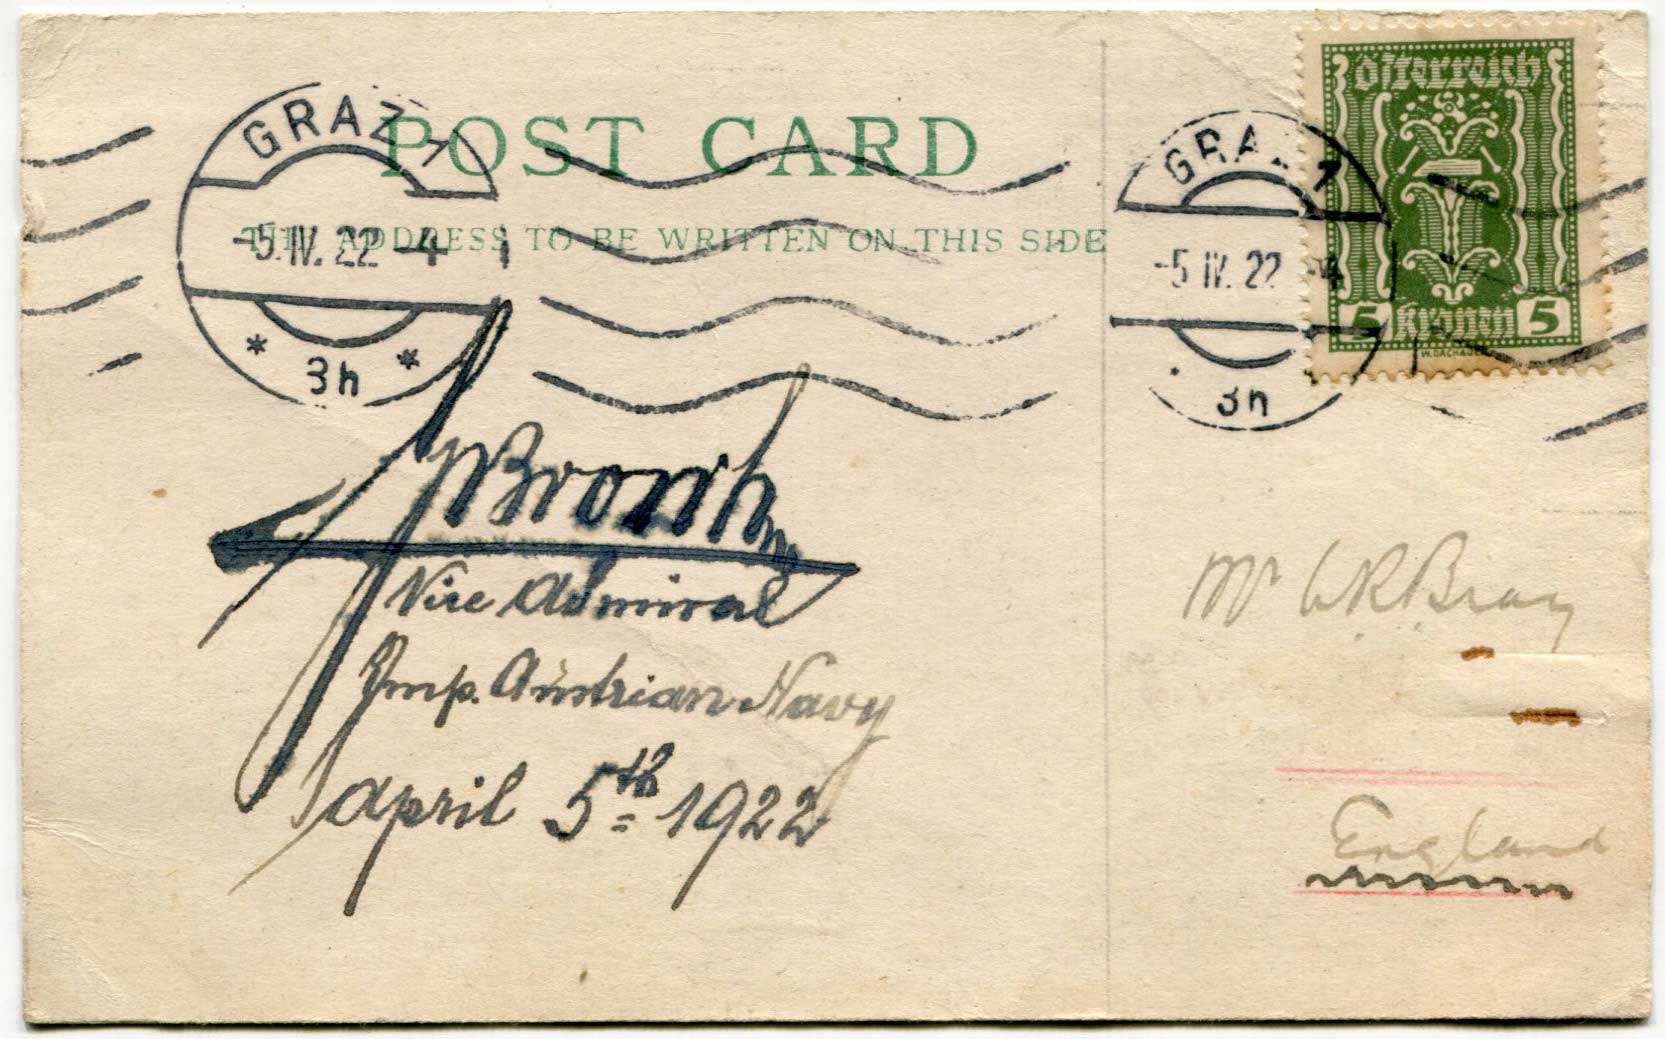 POST CARD
THE ADDRESS TO BE WRITTEN ON THIS SIDE
GRAZ 1
-5.IV.22-4
* 3h *
GRAZ 1
-5 IV. 22 -4
3h
Österreich
5 Kronen 5
W. DACHAUER
Vice Admiral
Imp. Austrian Navy
April 5th 1922
Mr W R Bray
England